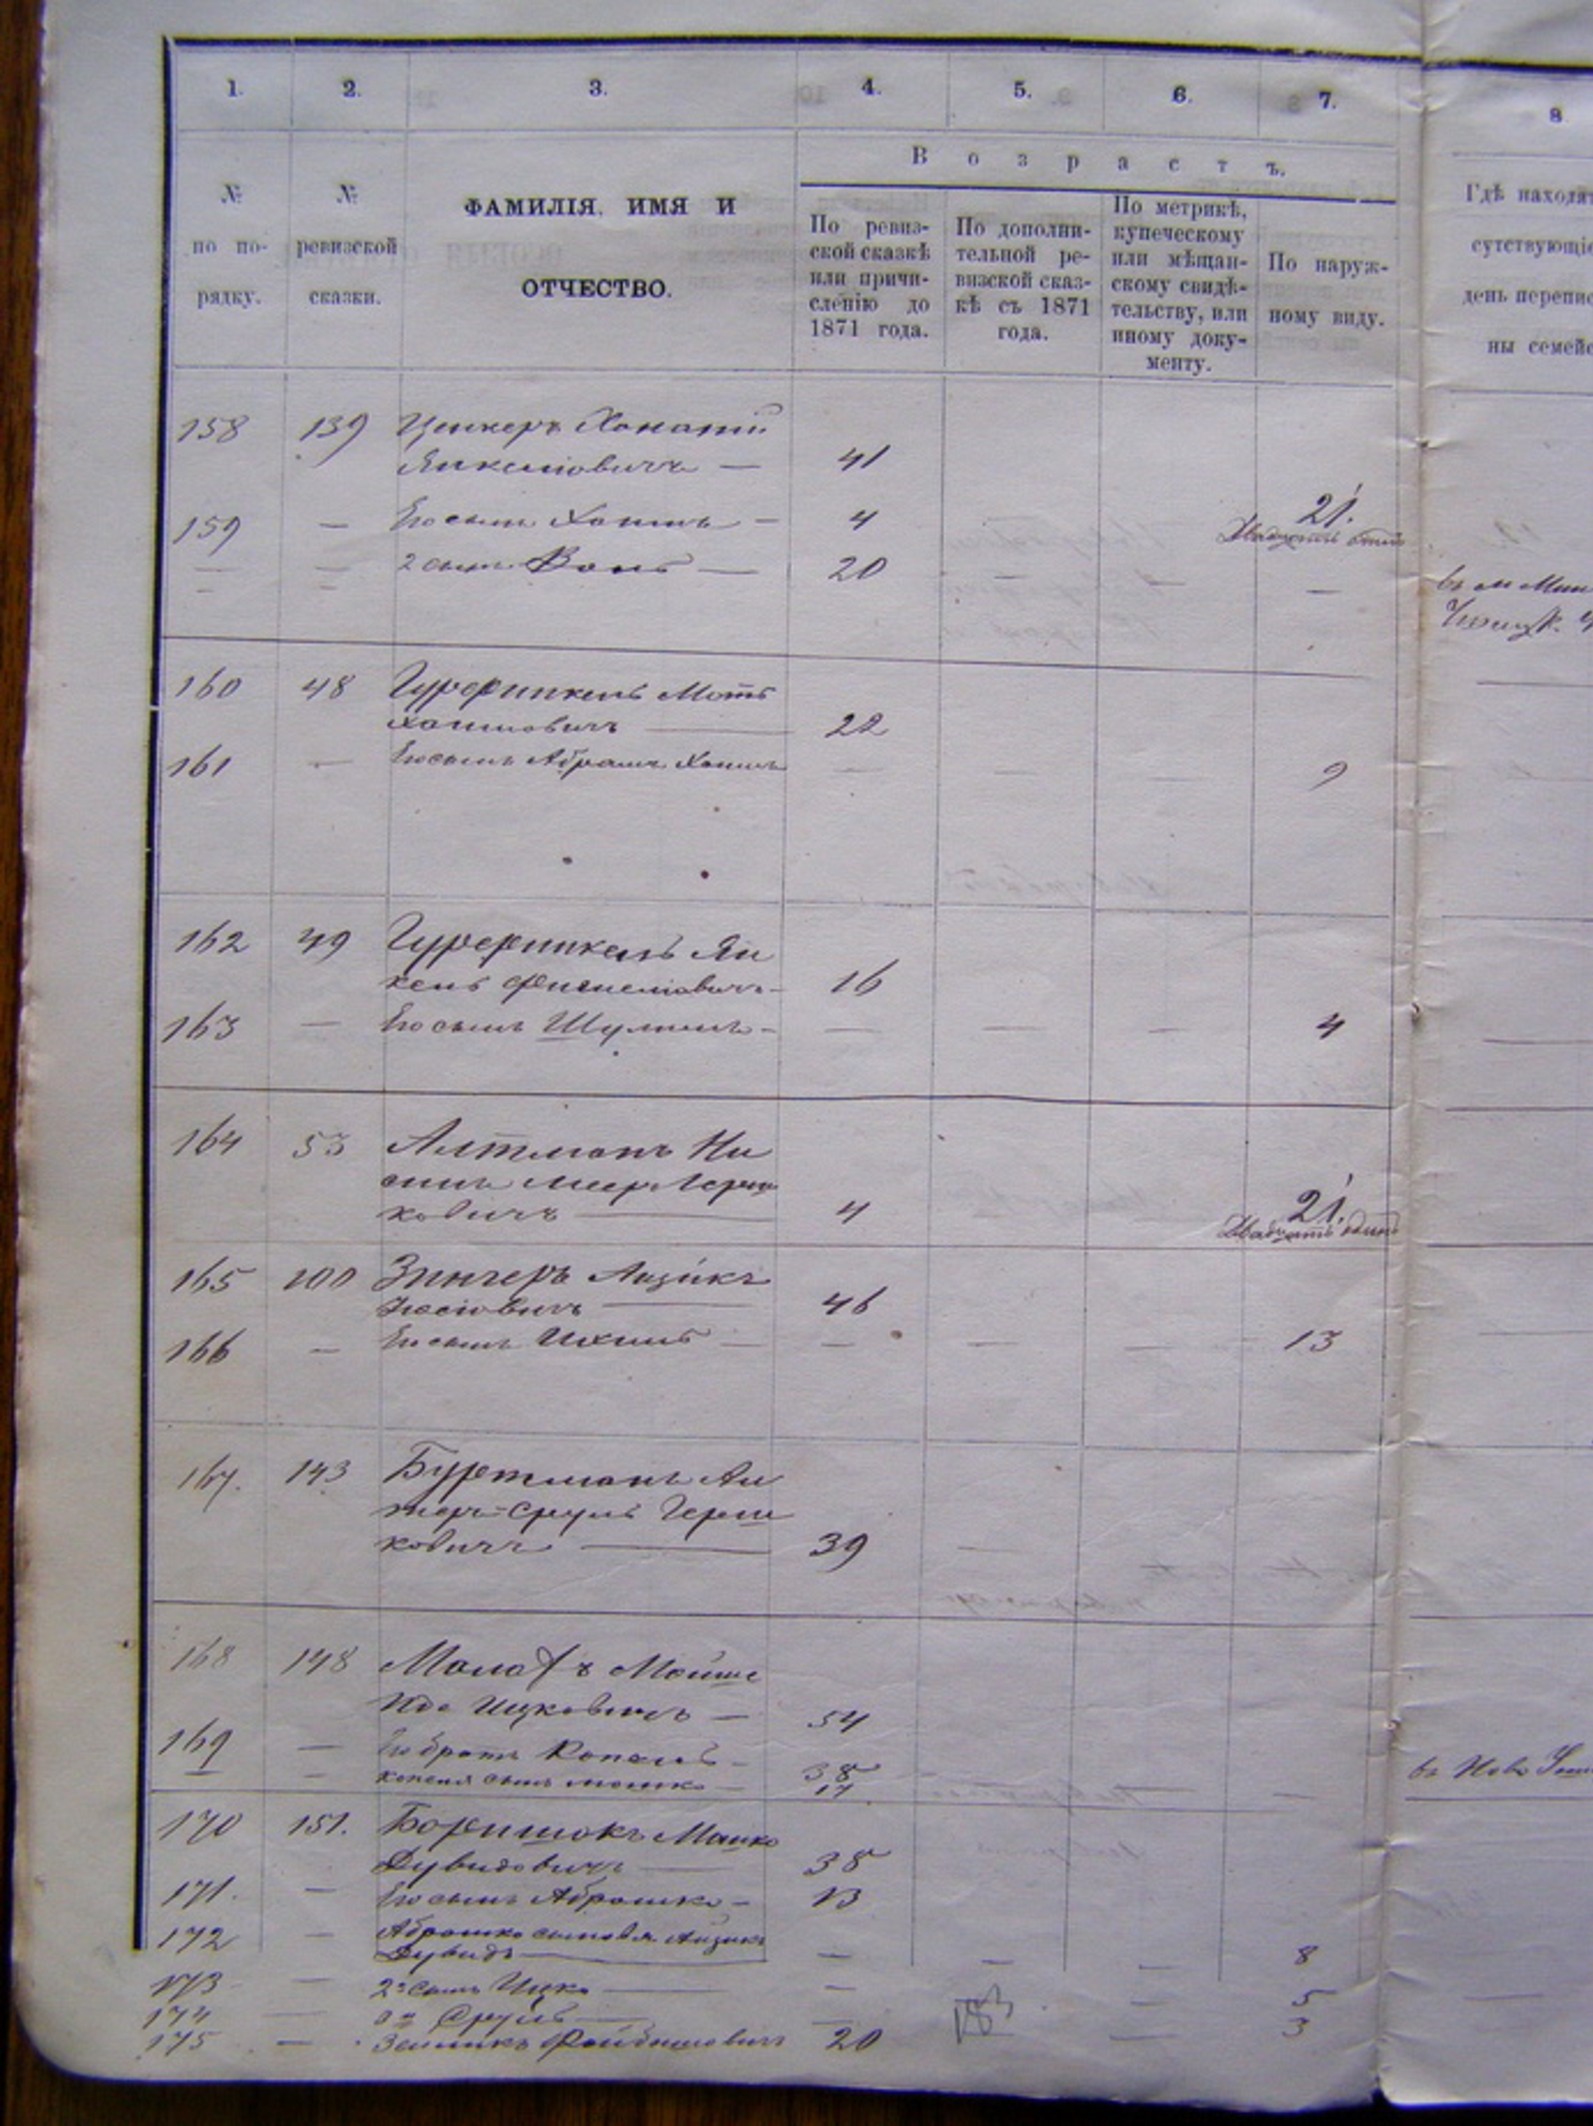 1. 2. 3. 4. 5. 6. 7. 8
В о з р а с т ъ.
№ по по- рядку.
№ ревизской сказки.
ФАМИЛІЯ, ИМЯ И
ОТЧЕСТВО.
По ревиз-
ской сказкѣ
или причи-
сленію до
1871 года.
По дополни-
тельной ре-
визской сказ-
кѣ съ 1871
года.
По метрикѣ,
купеческому
или мѣщан-
скому свидѣ-
тельству, или
иному доку-
менту.
По наруж-
ному виду.
Гдѣ находят
сутствующіе
день перепис
ны семейс
158 139 Ценкеръ
Янкеліовичъ — 41
159 — Его сынъ Хаимъ — 4 21.
Двадцать
— — 2 сынъ — 20 — —
въ м
160 48 Гурфинкель Мотъ
Хаимовичъ — 22
161 — Его сынъ Абрамъ Хаимъ — — — 9
162 49 Гурфинкель Ян
кель Фишеліовичъ — 16
163 — Его сынъ Шулимъ — — — — 4
164 53 Алтманъ Ни
синъ Меер Герш
ковичъ — 4 21.
Двадцать одинъ
165 100 Зингеръ Айзикъ
Іосіовичъ — 46
166 — Его сынъ Ихиль — — — — 13
167. 143 Буртманъ Ал
теръ-Сруль Герш
ковичъ — 39 —
168 148 Малахъ Мойше
Идо Ицковичъ — 54
169 — Его братъ Копель — 38
— Копеля сынъ Мошко — 17 —
въ Ново
170 151. Боришокъ Машко
Дувидовичъ — 38
171. — Его сынъ Абрашко — 13
172 — Абрашко сыновья Айзикъ
Дувидъ — — — — 8
173 — 2й сынъ Ицко — — — 5
174 — Сруль — — 3
175 — Зельманъ Файбишовичъ 20 183 —